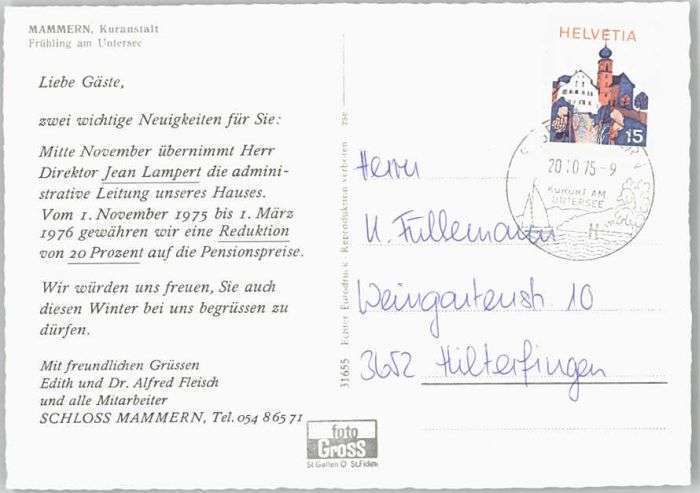 MAMMERN, Kuranstalt
Frühling am Untersee
Liebe Gäste,
zwei wichtige Neuigkeiten für Sie:
Mitte November übernimmt Herr
Direktor Jean Lampert die admini-
strative Leitung unseres Hauses.
Vom 1. November 1975 bis 1. März
1976 gewähren wir eine Reduktion
von 20 Prozent auf die Pensionspreise.
Wir würden uns freuen, Sie auch
diesen Winter bei uns begrüssen zu
dürfen.
Mit freundlichen Grüssen
Edith und Dr. Alfred Fleisch
und alle Mitarbeiter
SCHLOSS MAMMERN, Tel. 054 865 71
foto
Gross
St.Gallen O St.Fiden
31655 Echter Eurodruck. Reproduktion verboten
HELVETIA
15
20.10.75-9
KURORT AM
UNTERSEE
Herrn
U. Füllemann
Weingartenstr. 10
3652 Hilterfingen